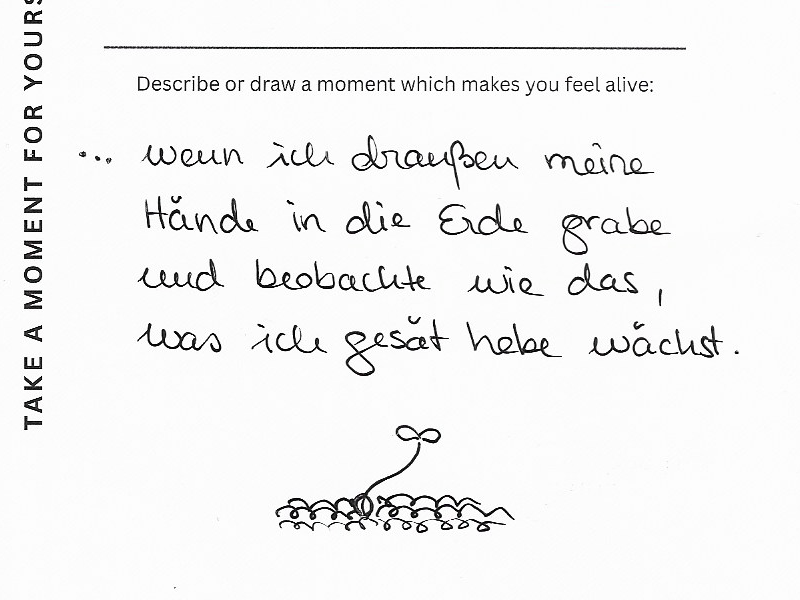 TAKE A MOMENT FOR YOURS
Describe or draw a moment which makes you feel alive:
... wenn ich draußen meine
Hände in die Erde grabe
und beobachte wie das,
was ich gesät habe wächst.